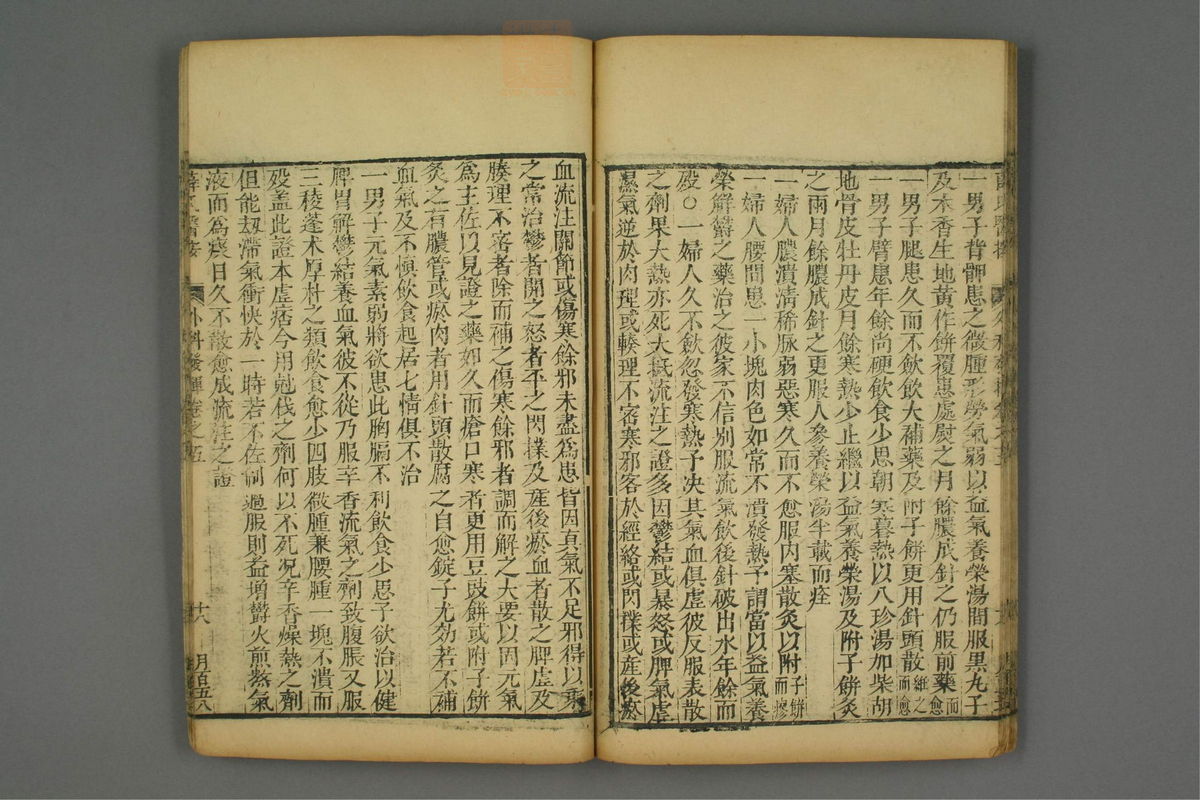 一男子背胛患之微腫形勞氣弱以益氣養榮湯間服黑丸子
及木香生地黃作餅覆患處熨之月餘膿成針之仍服前藥而愈
一男子腿患久而不飲飲大補藥及附子餅更用針頭散維之而愈
一男子臂患年餘尚硬飲食少思朝寒暮熱以八珍湯加柴胡
地骨皮牡丹皮月餘寒熱少止繼以益氣養榮湯及附子餅灸
之兩月餘膿成針之更服人參養榮湯半載而痊
一婦人膿潰清稀脉弱惡寒久而不愈服內塞散灸以附子餅而瘳
一婦人腰間患一小塊肉色如常不潰發熱予謂當以益氣養
榮解鬱之藥治之彼家不信別服流氣飲後針破出水年餘而
殁○一婦人久不飲忽發寒熱予决其氣血俱虛彼反服表散
之劑果大熱亦死大抵流注之證多因鬱結或暴怒或脾氣虛
濕氣逆於肉理或腠理不密寒邪客於經絡或閃撲或產後瘀
血流注關節或傷寒餘邪未盡爲患皆因真氣不足邪得以乘
之常治鬱者開之怒者平之閃撲及產後瘀血者散之脾虛及
腠理不密者除而補之傷寒餘邪者調而解之大要以固元氣
爲主佐以見證之藥如久而瘡口寒者更用豆豉餅或附子餅
灸之有膿管或瘀肉者用針頭散腐之自愈錠子尤効若不補
血氣及不愼飲食起居七情俱不治
一男子元氣素弱將欲患此胸膈不利飲食少思予欲治以健
脾胃解鬱結養血氣彼不從乃服辛香流氣之劑致腹脹又服
三稜蓬朮厚朴之類飲食愈少四肢微腫兼腰腫一塊不潰而
殁盖此證本虛痞今用尅伐之劑何以不死况辛香燥熱之劑
但能刼滯氣衝快於一時若不佐制過服則益增鬱火煎熬氣
液而爲痰日久不散愈成流注之證
薛氏醫按 外科發揮卷之五 十八 月百五八